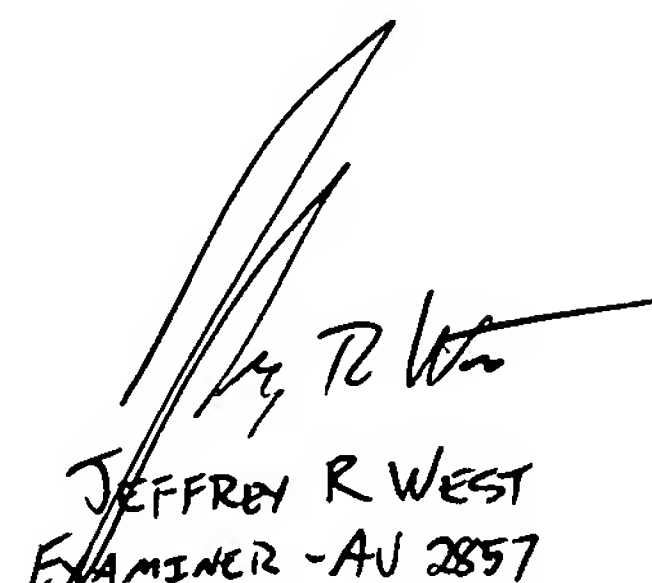 R W
JEFFREY R WEST
EXAMINER - AU 2857